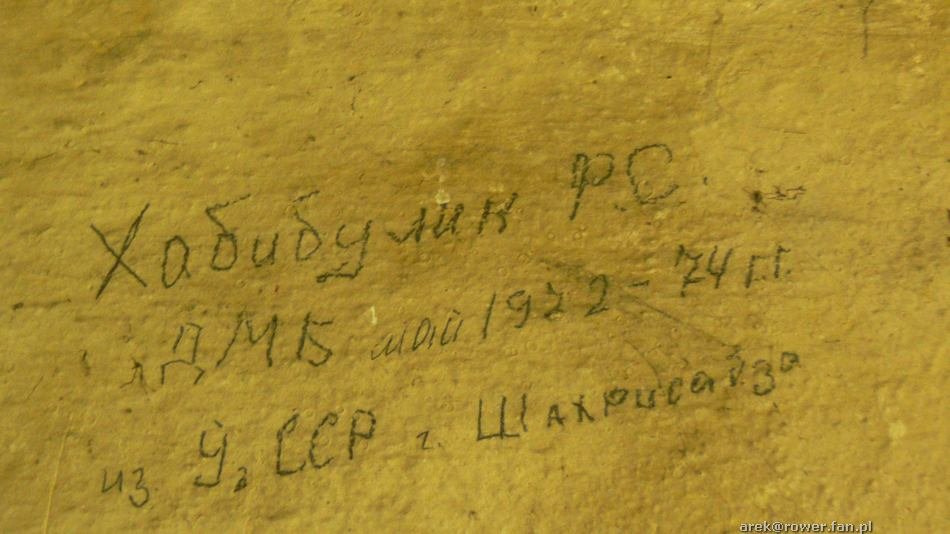 Хабибулин Р.С.
ДМБ май 1972-74 г.г.
из Уз ССР г. Шахрисабза
arek@rower.fan.pl